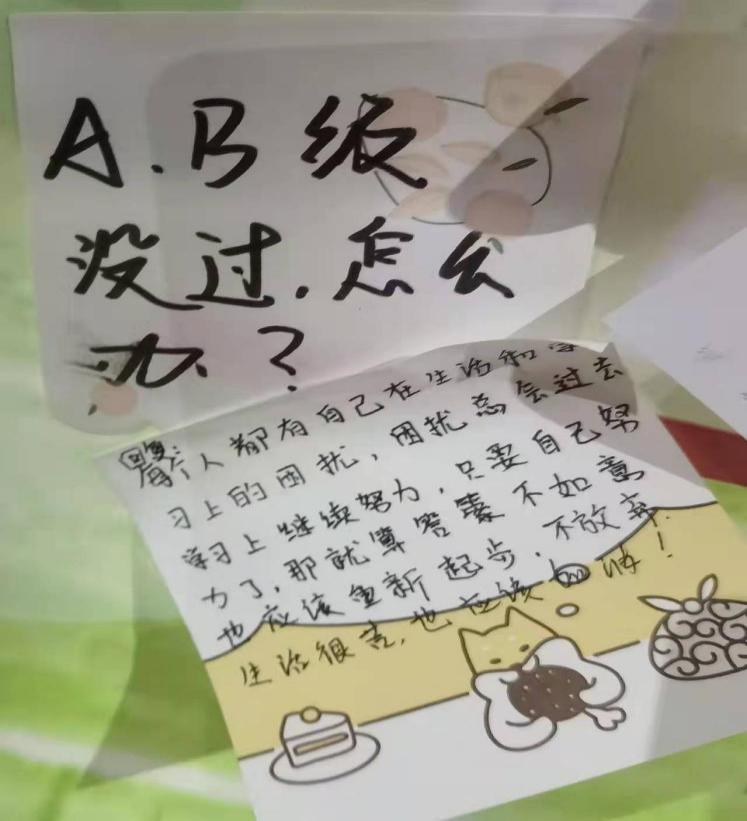 A.B级
没过.怎么
办？
回复:
每个人都有自己在生活和学
习上的困扰，困扰总会过去
学习上继续努力，只要自己努
力了，那就算答案不如意
也应该重新起步，不放弃.
生活很苦,也应该加油！